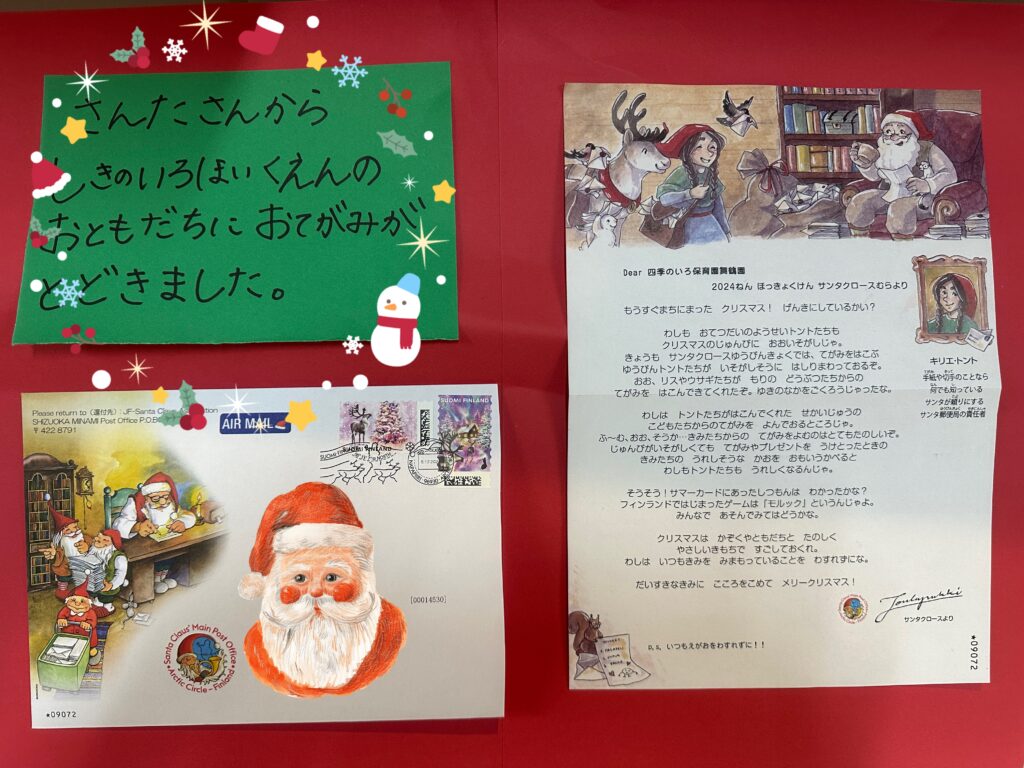 さんたさんから
しきのいろほいくえんの
おともだちに おてがみが
とどきました。
Please return to (還付先) : JF-Santa Claus
SHIZUOKA MINAMI Post Office P.O.B
〒422 8791
AIR MAIL
SUOMI FINLAND
SUOMI FINLAND
[00014530]
Santa Claus' Main Post Office
Arctic Circle - Finland
★09072
Dear 四季のいろ保育園舞鶴園
2024ねん ほっきょくけん サンタクロースむらより
もうすぐまちにまった クリスマス! げんきにしているかい?
わしも おてつだいのようせいトントたちも
クリスマスのじゅんびに おおいそがしじゃ。
きょうも サンタクロースゆうびんきょくでは、てがみをはこぶ
ゆうびんトントたちが いそがしそうに はしりまわっておるぞ。
おお、リスやウサギたちが もりの どうぶつたちからの
てがみを はこんできてくれたぞ。ゆきのなかをごくろうじゃったな。
わしは トントたちがはこんでくれた せかいじゅうの
こどもたちからのてがみを よんでおるところじゃ。
ふ〜む、おお、そうか…きみたちからの てがみをよむのはとてもたのしいぞ。
じゅんびがいそがしくても てがみやプレゼントを うけとったときの
きみたちの うれしそうな かおを おもいうかべると
わしもトントたちも うれしくなるんじゃ。
そうそう!サマーカードにあったしつもんは わかったかな?
フィンランドではじまったゲームは「モルック」というんじゃよ。
みんなで あそんでみてはどうかな。
クリスマスは かぞくやともだちと たのしく
やさしいきもちで すごしておくれ。
わしは いつもきみを みまもっていることを わすれずにな。
だいすきなきみに こころをこめて メリークリスマス!
Joulupukki
サンタクロースより
P.S. いつもえがおをわすれずに!!
★09072
キリエ・トント
手紙や切手のことなら
何でも知っている
サンタが頼りにする
サンタ郵便局の責任者